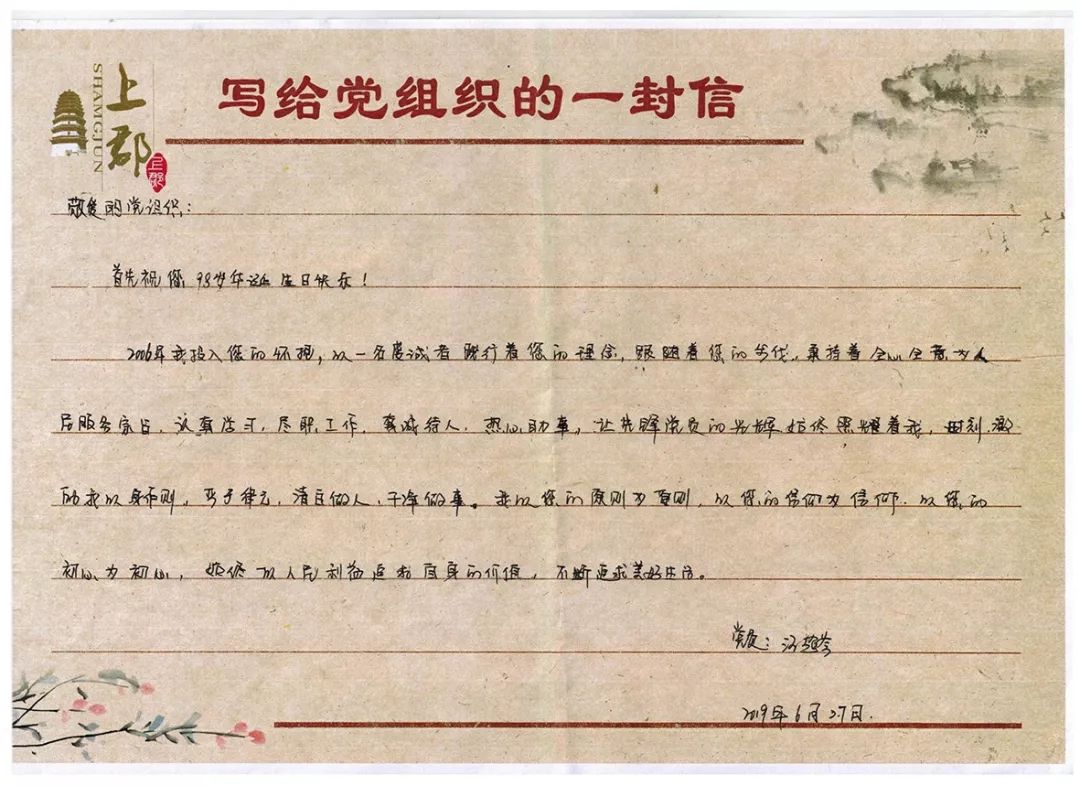 上郡
SHANGJUN
上郡
写给党组织的一封信
敬爱的党组织:
首先祝您98岁华诞生日快乐!
2006年我投入您的怀抱,以一名虔诚者践行着您的理念,跟随着您的步伐,秉持着全心全意为人
民服务宗旨,认真学习,尽职工作,真诚待人,热心助事。让先辈党员的光辉始终照耀着我,时刻激
励我以身作则,严于律己,清白做人,干净做事。我以您的原则为原则,以您的信仰为信仰,以您的
初心为初心,始终以人民利益追求自身的价值,不断追求美好生活。
党员:
2019年6月27日.